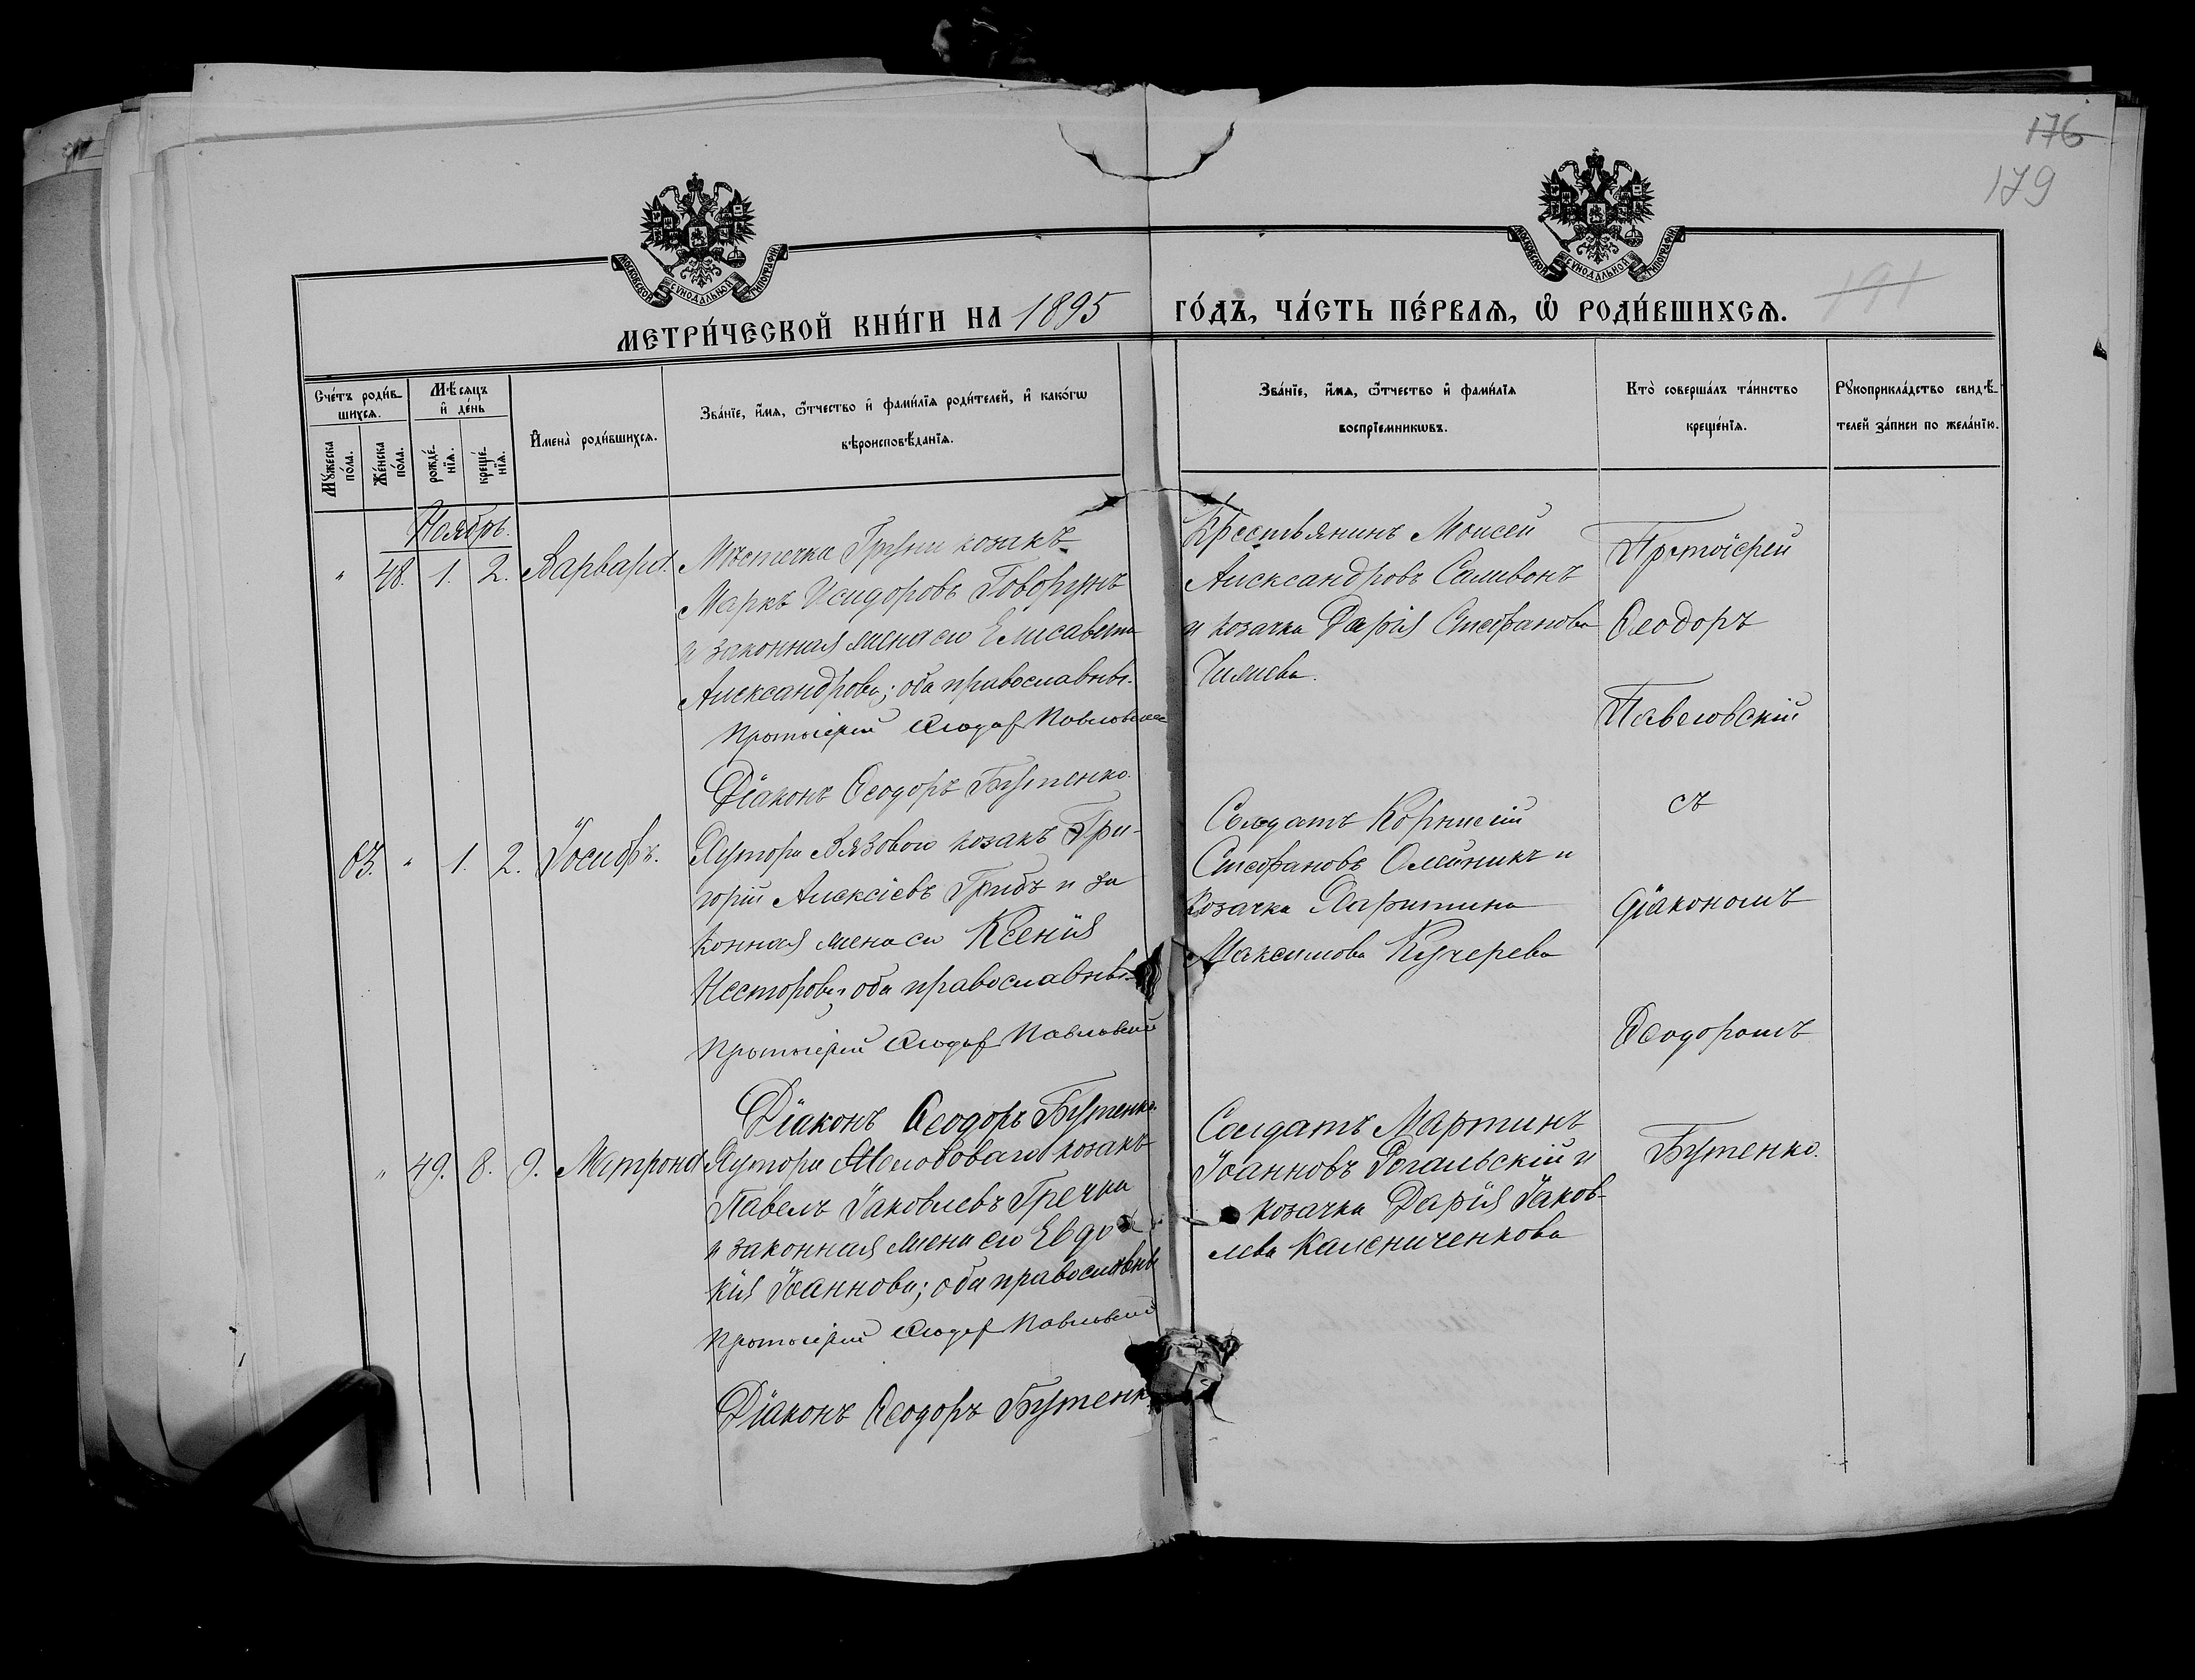 176
179
МОСКОВСКОЙ СѴНОДАЛЬНОЙ ТИПОГРАФІИ
МОСКОВСКОЙ СѴНОДАЛЬНОЙ ТИПОГРАФІИ
191
МЕТРИ́ЧЕСКОЙ КНИ́ГИ НА 1895 ГО́ДЪ, ЧА́СТЬ ПЕ́РВАЯ, Ѡ҆ РОДИ́ВШИХСЯ.
Сче́тъ роди́в-
шихся.
Мꙋ́жеска
по́ла.
Же́нска
по́ла.
Мѣ́сяцъ
и҆ де́нь
рожде́-
нїя.
креще́-
нїя.
И҆мена̀ роди́вшихся.
Зва́нїе, и҆́мя, ѻ҆́тчество и҆ фами́лїя роди́телей, и҆ како́гѡ
вѣроисповѣ́данїя.
Зва́нїе, и҆́мя, ѻ҆́тчество и҆ фами́лїя
воспрїемникѡвъ.
Кто̀ соверша́лъ та́инство
креще́нїя.
Рꙋкоприкла́дство свидѣ́-
телей за́писи по жела́нїю.
Ноябрь.
" 48. 1. 2. Варвара.
Мѣстечка Груни козакъ
Маркъ Исидоровъ Говорунъ
и законная жена его Елисавета
Александрова; оба православны.
Протоіерей Ѳеодоръ Павловскій
Діаконъ Ѳеодоръ Бутенко.
Крестьянинъ Моисей
Александровъ Саливонъ
и козачка Дарія Стефанова
Протоіерей
Ѳеодоръ
Павловскій
съ
діакономъ
Ѳеодоромъ
Бутенко.
63. " 1. 2. Іосифъ.
Хутора Вязоваго козакъ Гри-
горій Алексіевъ Грибъ и за
конная жена его Ксенія
Несторова; оба православны
Протоіерей Ѳеодоръ Павловскій
Діаконъ Ѳеодоръ Бутенко.
Солдатъ Корнилій
Стефановъ Олейникъ и
козачка Харитина
Максимова Кучерева
" 49. 8. 9. Матрона
Хутора козакъ
Павелъ Іаковлевъ Гречка
и законная жена его Евдо
кія Іоаннова; оба православны
Протоіерей Ѳеодоръ Павловскій
Діаконъ Ѳеодоръ Бутенко
Солдатъ Мартинъ
Іоанновъ Рогальскій и
козачка Дарія Іаков-
лева Калениченкова